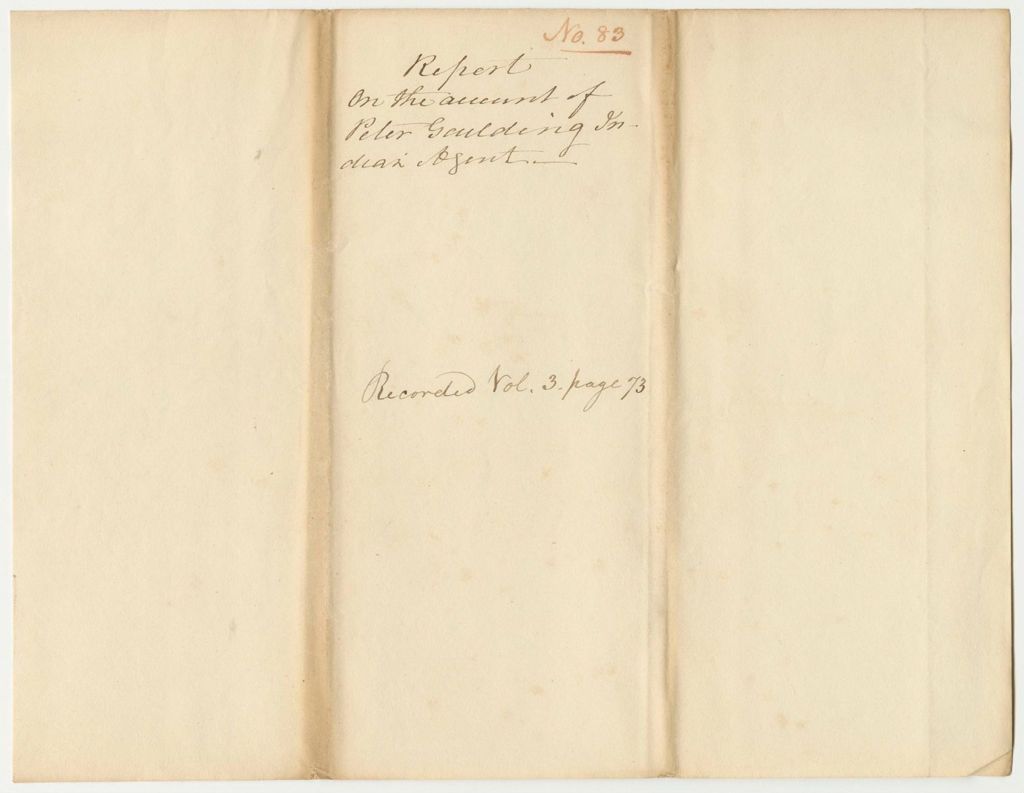 No. 83
Report
On the account of
Peter Goulding In-
dian Agent.
Recorded Vol. 3. page 73